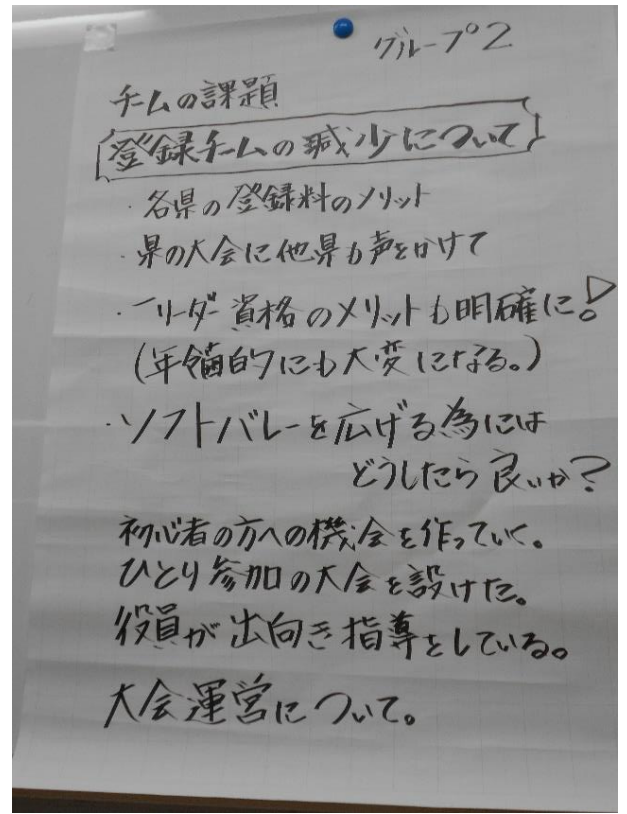 グループ2
チームの課題
登録チームの減少について
・各県の登録料のメリット
・県の大会に他県も声をかけて
・リーダー資格のメリットも明確に!
(年齢的にも大変になる。)
・ソフトバレーを広げる為には
どうしたら良いか?
初心者の方への機会を作っていく。
ひとり参加の大会を設けた。
役員が出向き指導をしている。
大会運営について。